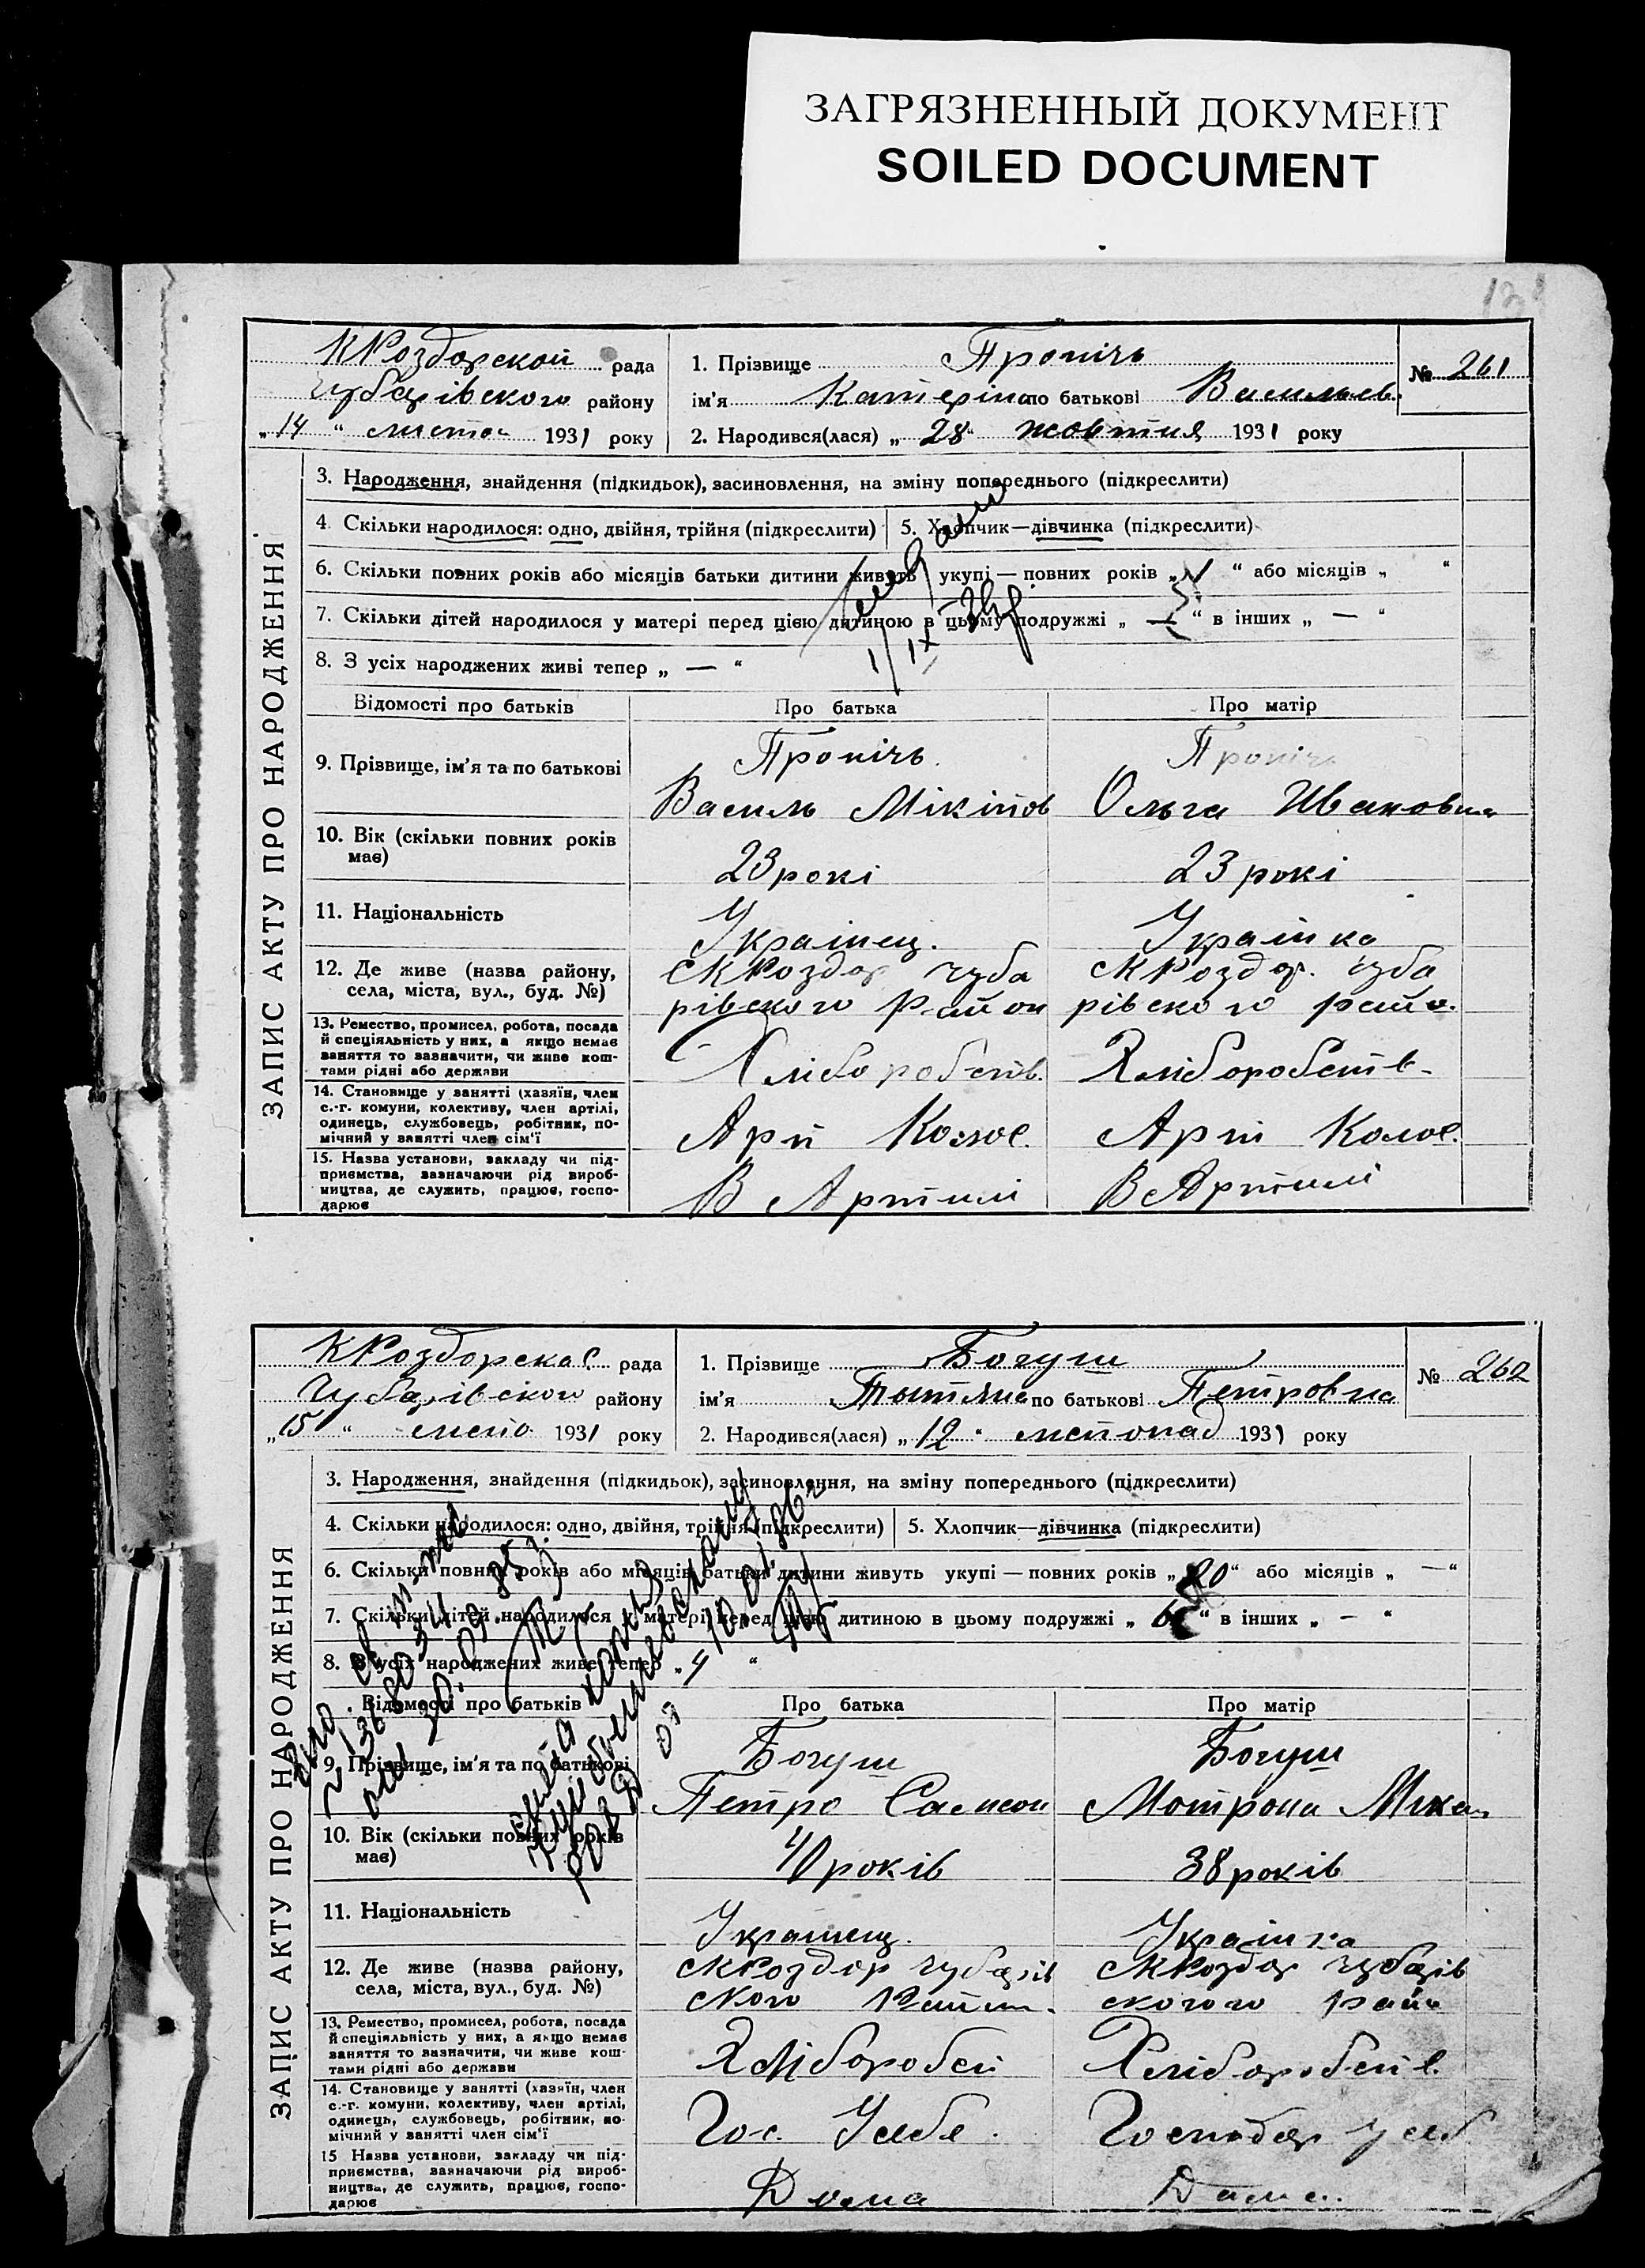 ЗАГРЯЗНЕННЫЙ ДОКУМЕНТ
SOILED DOCUMENT
КРоздорской рада
Чубарівского району
„14“ листоп 1931 року
1. Прізвище Пропічь
№ 261
ім'я Катеріна по батькові Васильев.
2. Народився(лася) „28“ жовтня 1931 року
ЗАПИС АКТУ ПРО НАРОДЖЕННЯ
3. Народження, знайдення (підкидьок), засиновлення, на зміну попереднього (підкреслити)
4. Скільки народилося: одно, двійня, трійня (підкреслити)
5. Хлопчик—дівчинка (підкреслити)
6. Скільки повних років або місяців батьки дитини живуть укупі — повних років „1“ або місяців „ “
7. Скільки дітей народилося у матері перед цією дитиною в цьому подружжі „—“ в інших „—“
8. З усіх народжених живі тепер „—“
Відомості про батьків
Про батька
Про матір
9. Прізвище, ім'я та по батькові
Пропічь
Василь Мікітов
Пропічь
Ольга Ивановна
10. Вік (скільки повних років
має)
23 рокі
23 рокі
11. Національність
Украінец.
Украінка
12. Де живе (назва району,
села, міста, вул., буд. №)
СКРоздор Чуба
рівского Район
СКРоздор. Чуба
рівского Райо.
13. Ремество, промисел, робота, посада
й спеціяльність у них, а якщо немає
заняття то зазначити, чи живе кош-
тами рідні або держави
Хліборобств.
Хліборобств.
14. Становище у занятті (хазяїн, член
с.-г. комуни, колективу, член артілі,
одинець, службовець, робітник, по-
мічний у занятті член сім'ї
Арт Колос.
Арт Колос.
15. Назва установи, закладу чи під-
приємства, зазначаючи рід вироб-
ництва, де служить, працює, госпо-
дарює
В Артилі
В Артилі
КРоздорска рада
Чубарівского району
„15“ листо 1931 року
1. Прізвище Богуш
№ 262
ім'я по батькові Петровна
2. Народився(лася) „12“ листопад 1931 року
ЗАПИС АКТУ ПРО НАРОДЖЕННЯ
3. Народження, знайдення (підкидьок), засиновлення, на зміну попереднього (підкреслити)
4. Скільки народилося: одно, двійня, трійня (підкреслити)
5. Хлопчик—дівчинка (підкреслити)
6. Скільки повних років або місяців батьки дитини живуть укупі — повних років „20“ або місяців „—“
7. Скільки дітей народилося у матері перед цією дитиною в цьому подружжі „ “ в інших „—“
8. З усіх народжених живі тепер „4“
Відомості про батьків
Про батька
Про матір
9. Прізвище, ім'я та по батькові
Богуш
Петро Самсон
Богуш
Мотрона
10. Вік (скільки повних років
має)
40 років
38 років
11. Національність
Украінец.
Украінка
12. Де живе (назва району,
села, міста, вул., буд. №)
СКРоздор Чубарів
ского
СКРоздор Чубарів
Райо
13. Ремество, промисел, робота, посада
й спеціяльність у них, а якщо немає
заняття то вазначити, чи живе кош-
тами рідні або держави
Хліборобст
Хліборобств.
14. Становище у занятті (хазяїн, член
с.-г. комуни, колективу, член артілі,
одинець, службовець, робітник, по-
мічний у занятті член сім'ї
Гос.
Господар
15 Назва установи, закладу чи під-
приємства, вазначаючи рід вироб-
ництва, де служить, працює, госпо-
дарює
Дома
Дома.